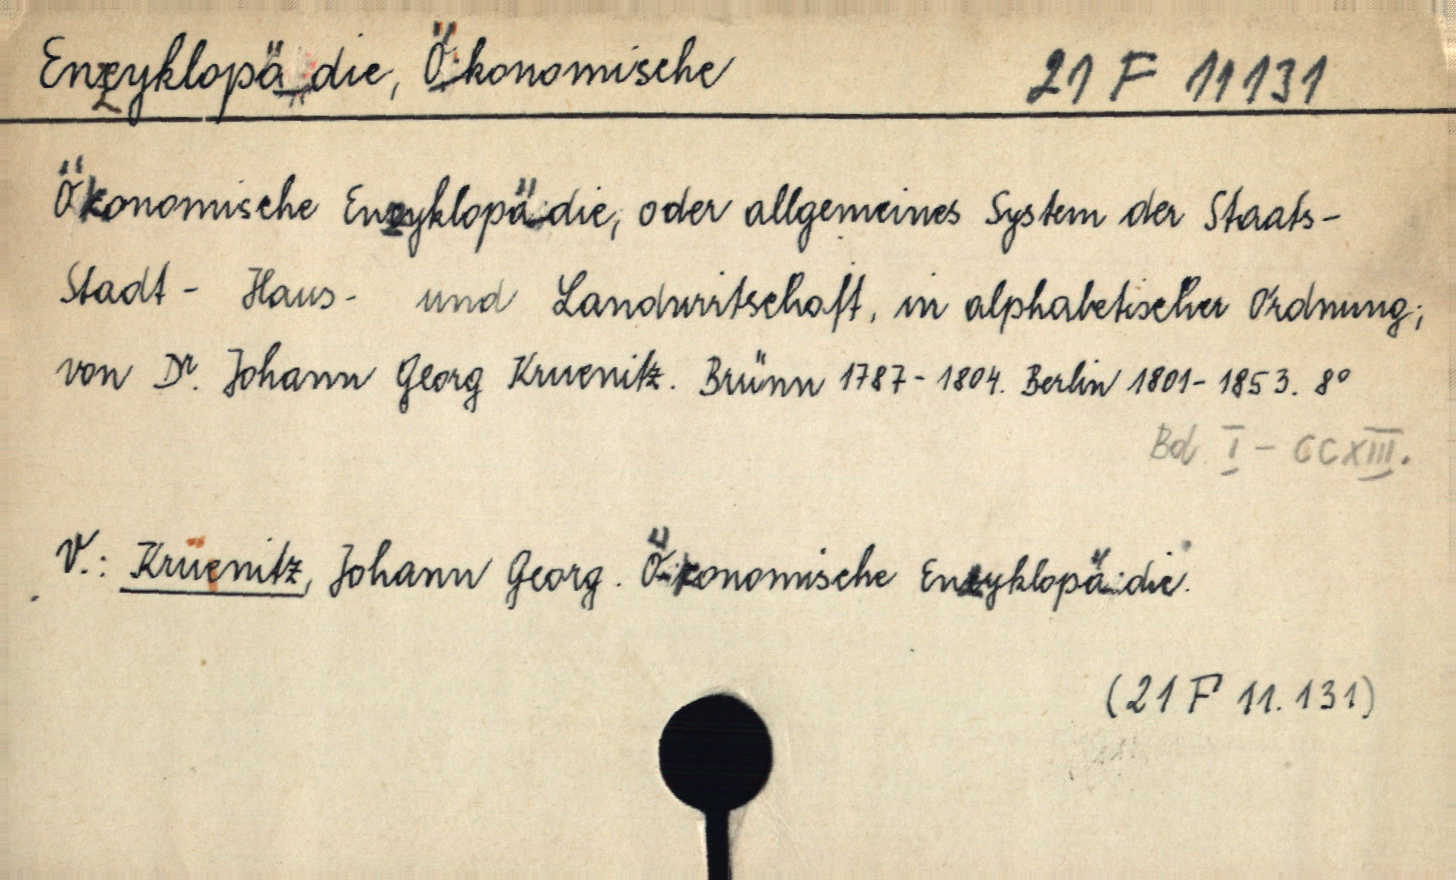 Enzyklopädie, Ökonomische 21 F 11131
Ökonomische Enzyklopädie, oder allgemeines System der Staats-
Stadt- Haus- und Landwirtschaft, in alphabetischer Ordnung;
von Dr. Johann Georg Kruenitz. Brünn 1787-1804. Berlin 1801-1853. 8°
Bd I - CCXIII.
V.: Krüenitz, Johann Georg. Ökonomische Enzyklopädie.
(21 F 11.131)